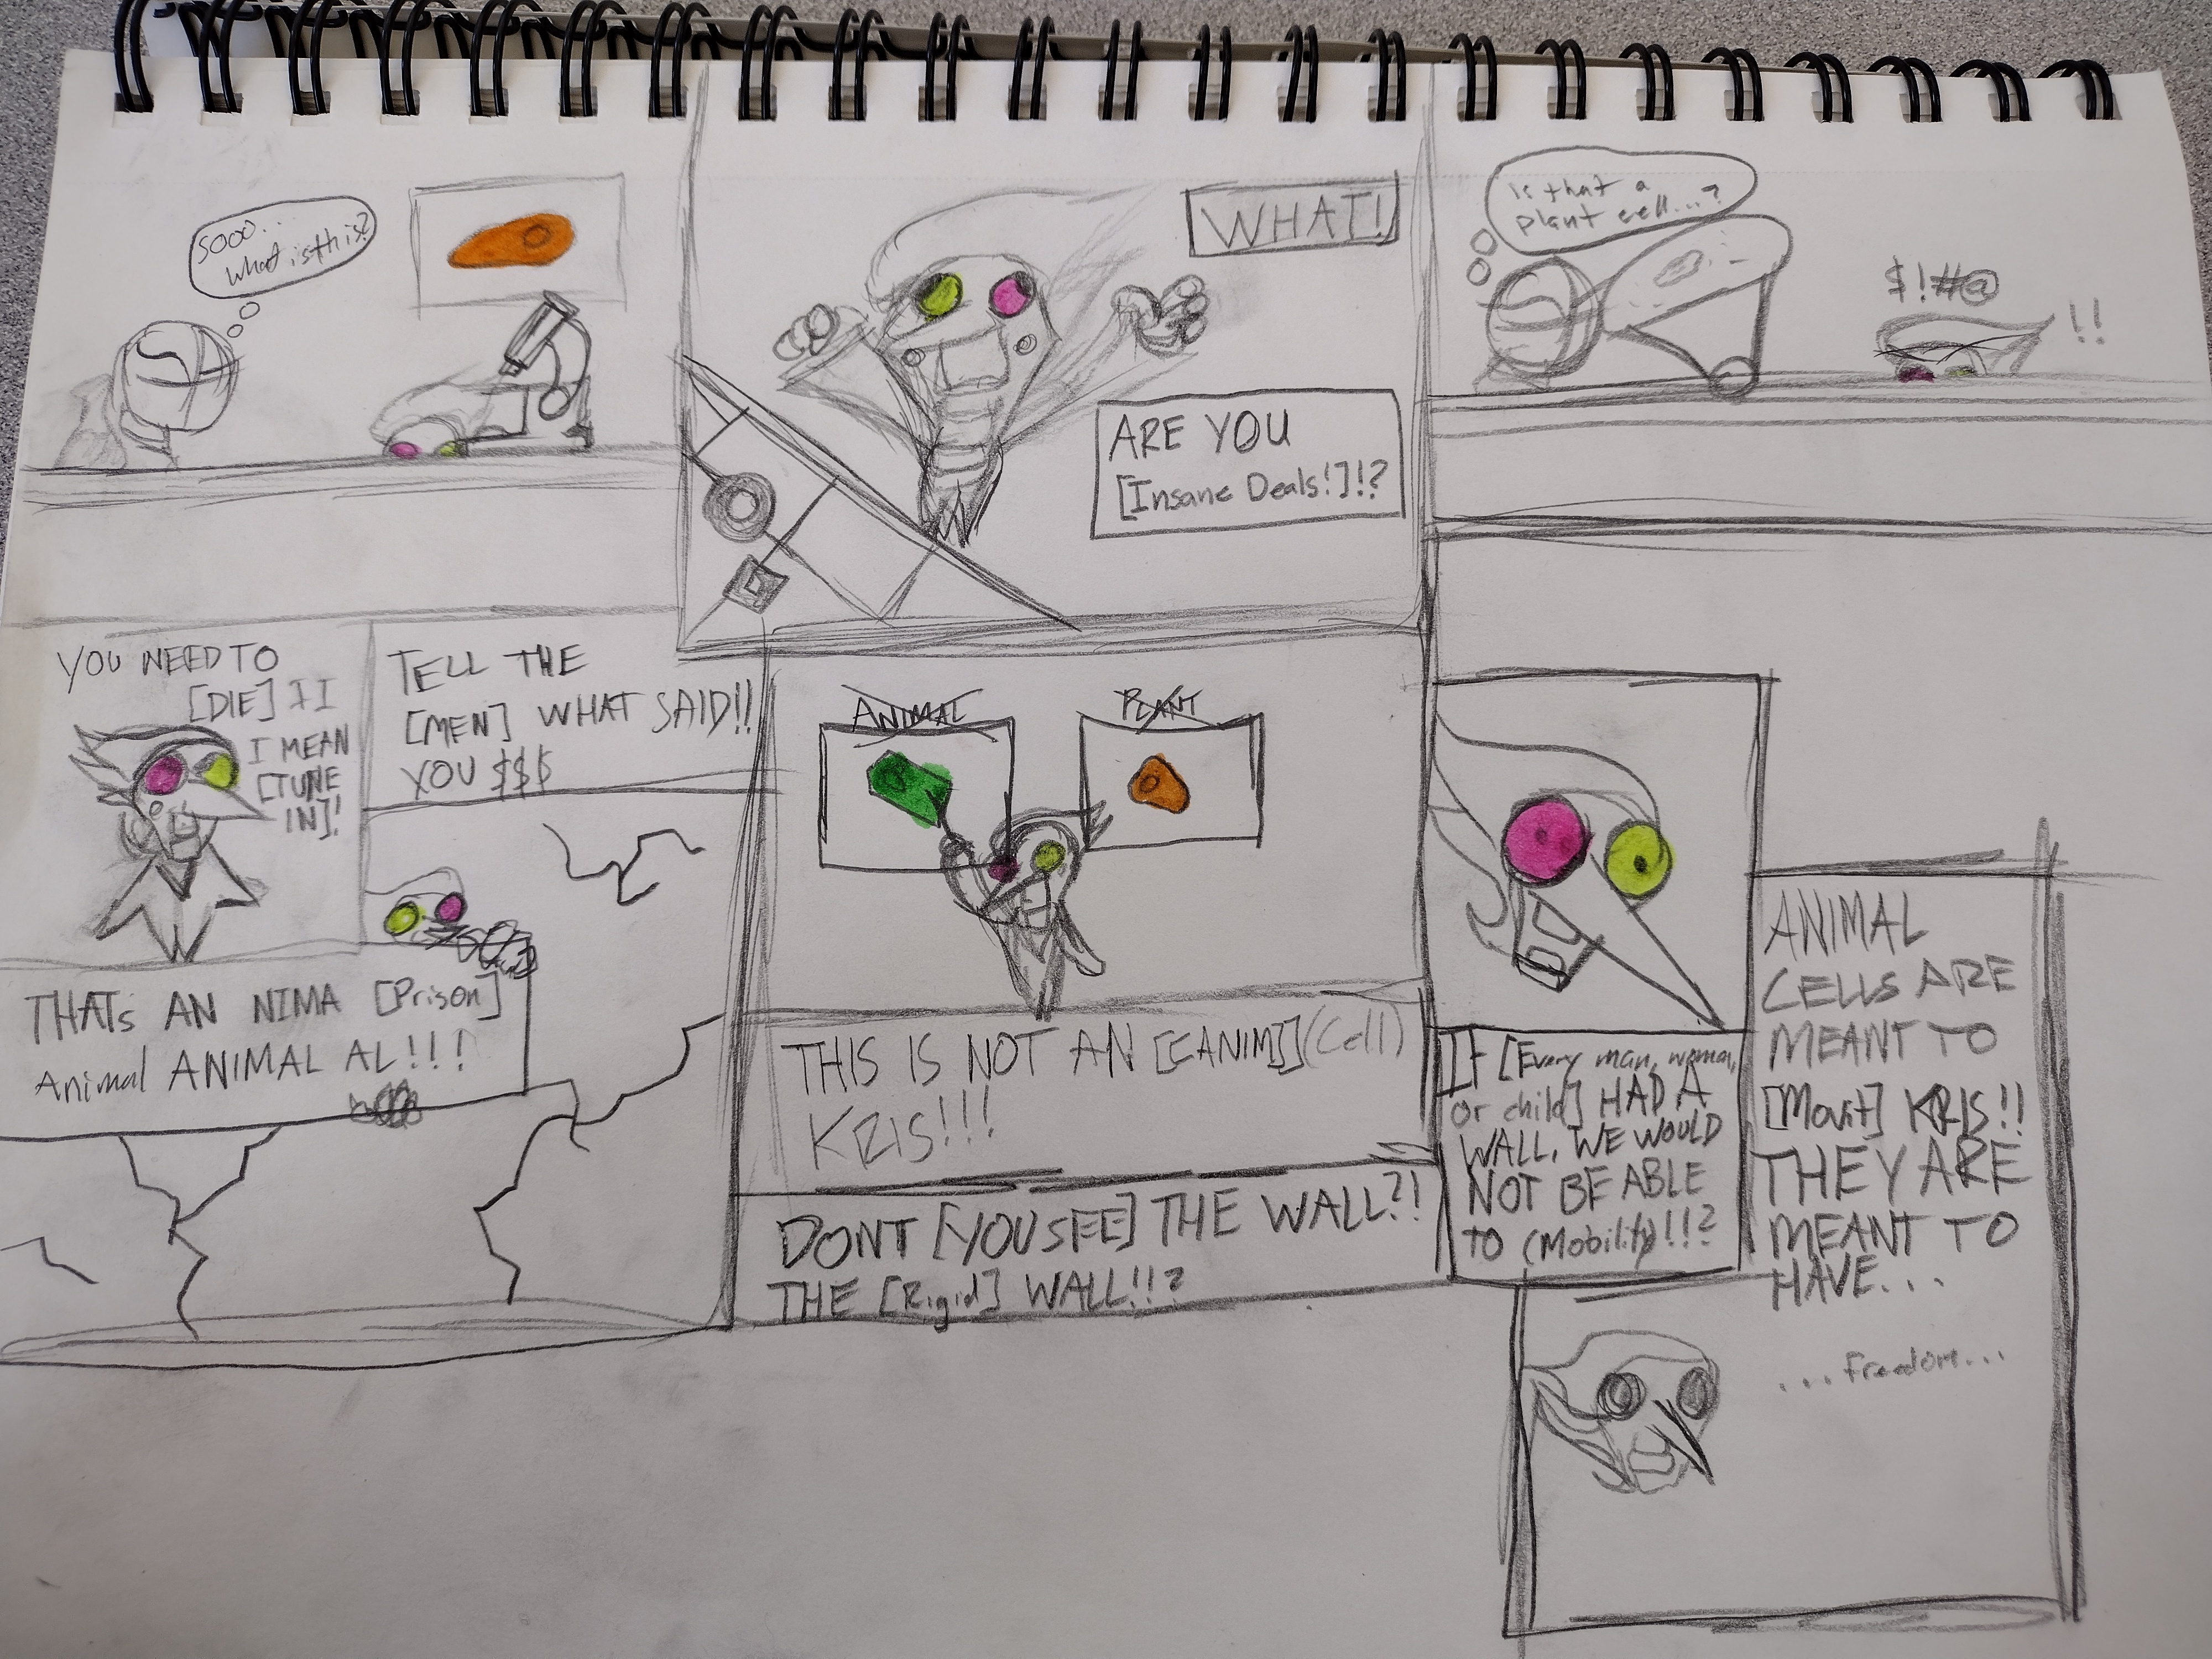 Sooo..
what is this?
WHAT!
ARE YOU
[Insane Deals!]!?
Is that a
plant cell...?
$!#@
!!
YOU NEED TO
[DIE] II
I MEAN
[TUNE
IN]!
TELL THE
[MEN] WHAT SAID!!
YOU $$$
THATs AN NIMA [Prison]
Animal ANIMAL AL!!!
ANIMAL
PLANT
THIS IS NOT AN [CANIM]](Cell)
KRIS!!!
DONT [YOU SEE] THE WALL?!
THE [Rigid] WALL!!?
IF [Every man, woman,
or child] HAD A
WALL, WE WOULD
NOT BE ABLE
TO (Mobility)!!?
ANIMAL
CELLS ARE
MEANT TO
KRIS!!
THEY ARE
MEANT TO
HAVE...
...freedom...